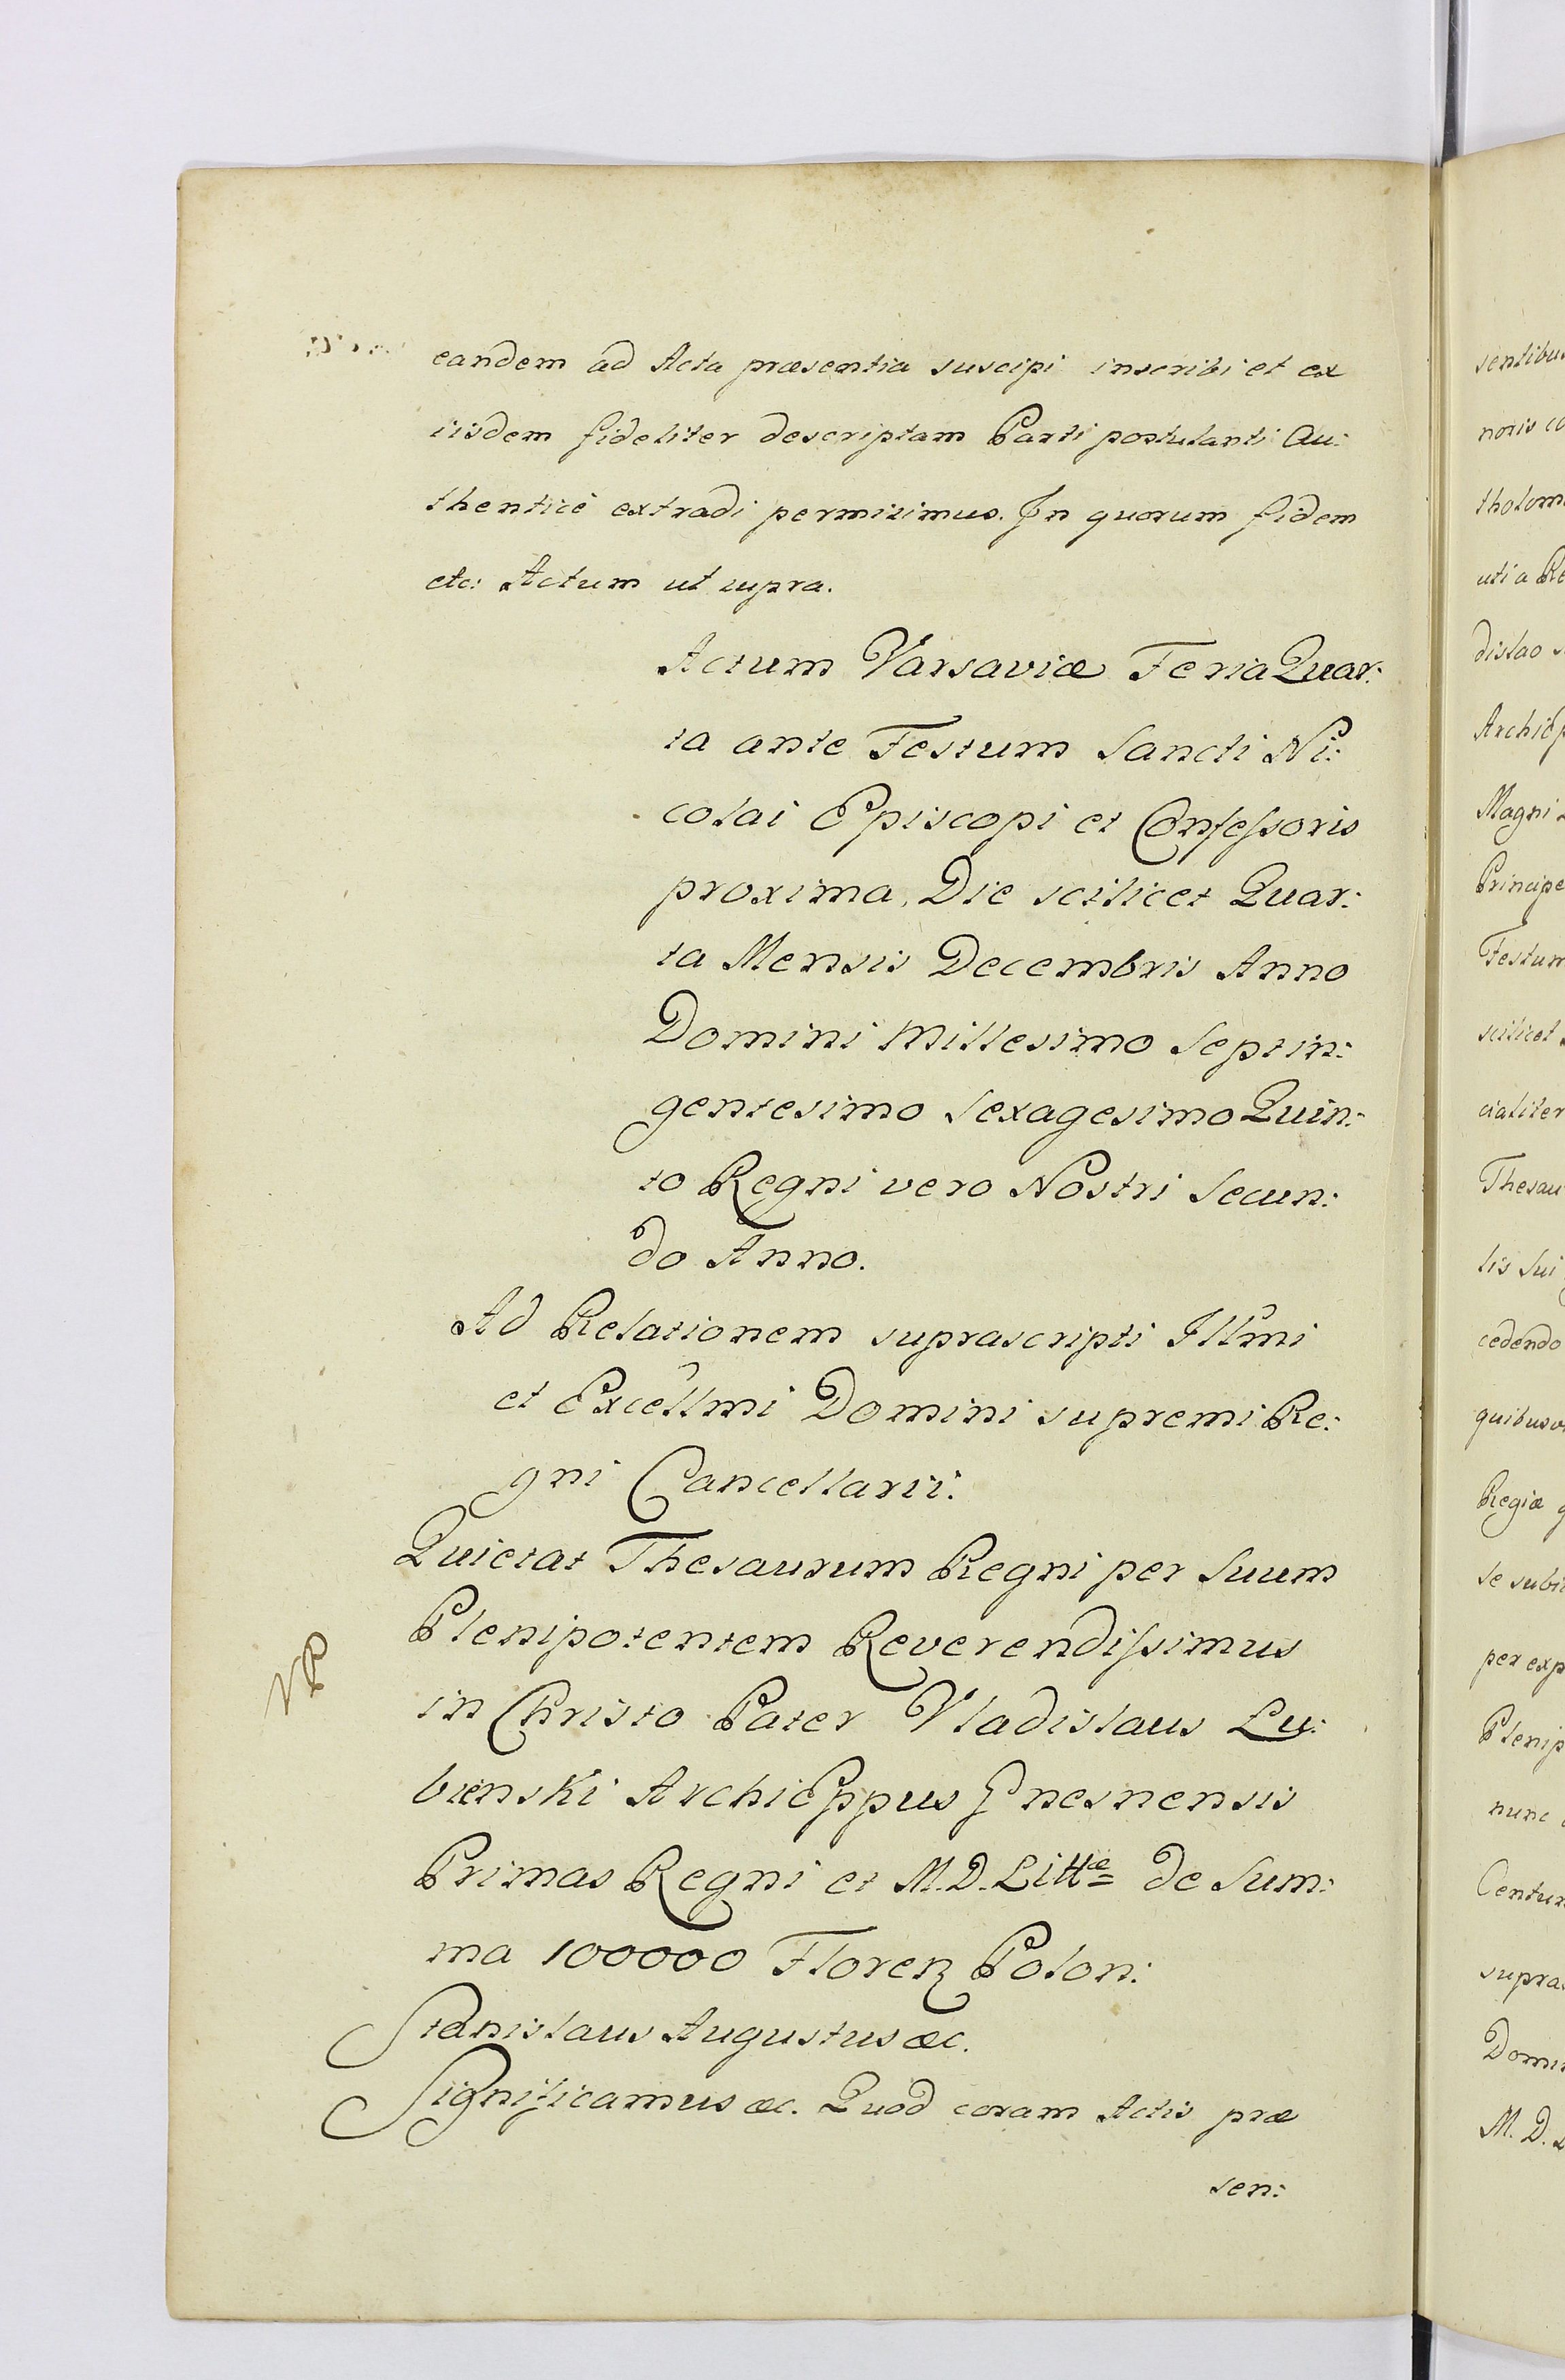 eandem ad Acta præsentia suscipi inscribi et ex
iisdem fideliter descriptam Parti postulanti Au:
thenticè extradi permisimus. In quorum fidem
etc: Actum ut supra.
Actum Varsaviæ Feria Quar:
ta ante Festum Sancti Ni:
colai Episcopi et Confessoris
proxima, Die scilicet Quar:
ta Mensis Decembris Anno
Domini Millesimo Septin:
gentesimo Sexagesimo Quin:
to Regni vero Nostri Secun:
do Anno.
Ad Relationem suprascripti Illmi
et Excellmi Domini supremi Re:
gni Cancellarii.
Quietat Thesaurum Regni per Suum
Plenipotentem Reverendissimus
in Christo Pater Vladislaus Lu:
bienski ArchiEppus Gnesnensis
Primas Regni et M. D. Littæ de Sum:
ma 100000 Floren Polon:
Stanislaus Augustus æc.
Significamus æc. Quod coram Actis præ
sen:
sentibus
noris co
tholom
uti a Re
dislao
ArchiEp
Magni
Principe
Festum
scilicet
cialiter
Thesau
lis Sui
cedendo
quibusv
Regiæ
se subi
per exp
Plenip
nunc
Centum
supra
Domi
M. D.